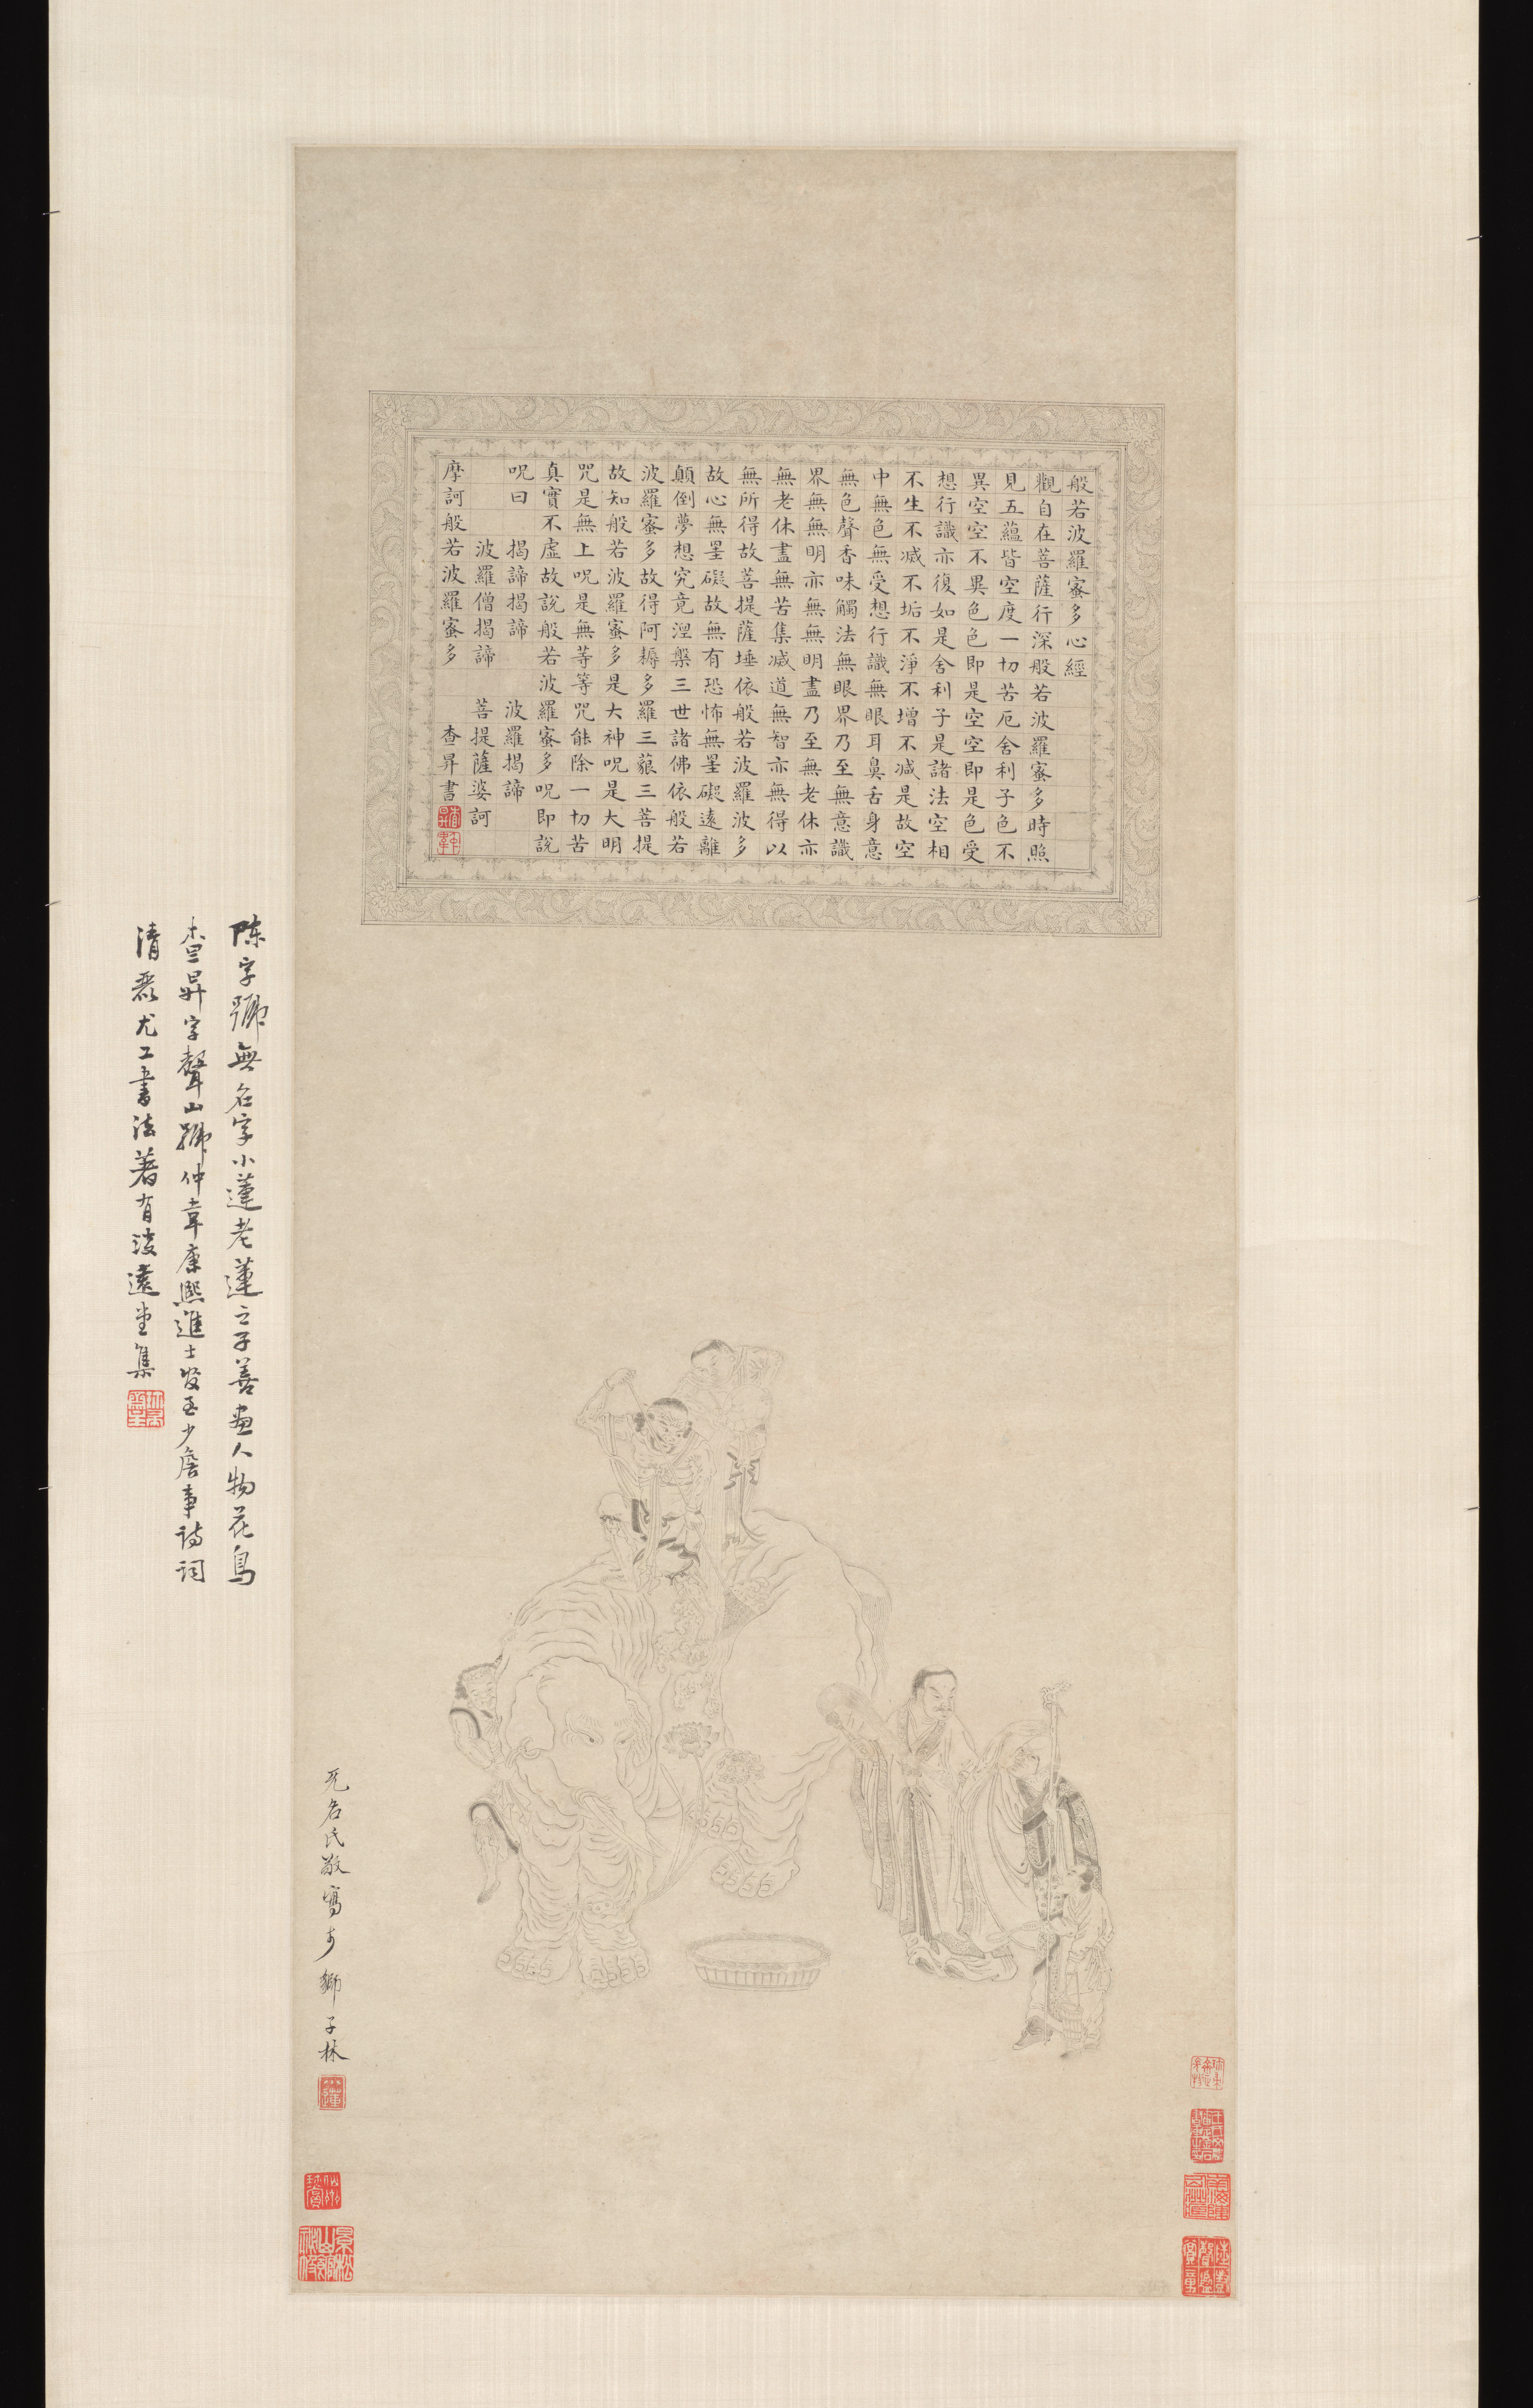 般若波羅蜜多心經
觀自在菩薩行深般若波羅蜜多時照
見五蘊皆空度一切苦厄舍利子色不
異空空不異色色即是空空即是色受
想行識亦復如是舍利子是諸法空相
不生不滅不垢不淨不增不減是故空
中無色無受想行識無眼耳鼻舌身意
無色聲香味觸法無眼界乃至無意識
界無無明亦無無明盡乃至無老休亦
無老休盡無苦集滅道無智亦無得以
無所得故菩提薩埵依般若波羅波多
故心無罣礙故無有恐怖無罣礙遠離
顛倒夢想究竟涅槃三世諸佛依般若
波羅蜜多故得阿耨多羅三藐三菩提
故知般若波羅蜜多是大神呪是大明
咒是無上呪是無等等咒能除一切苦
真實不虛故說般若波羅蜜多呪即說
呪曰 揭諦揭諦 波羅揭諦
波羅僧揭諦 菩提薩婆訶
摩訶般若波羅蜜多 查昇書
无名氏敬寫於獅子林
陈字號無名字小蓮老蓮之子善畫人物花鳥
查昇字聲山號仲韋康熙進士官至少詹事詩詞
清麗尤工書法著有淡遠堂集
小蓮